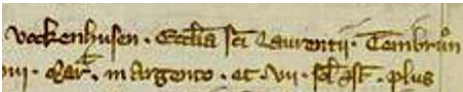 vockenhusen · Ecclia sci Laurentii · Tembrun
iiii · Mar · in argento · et · vii · sol · st · plus